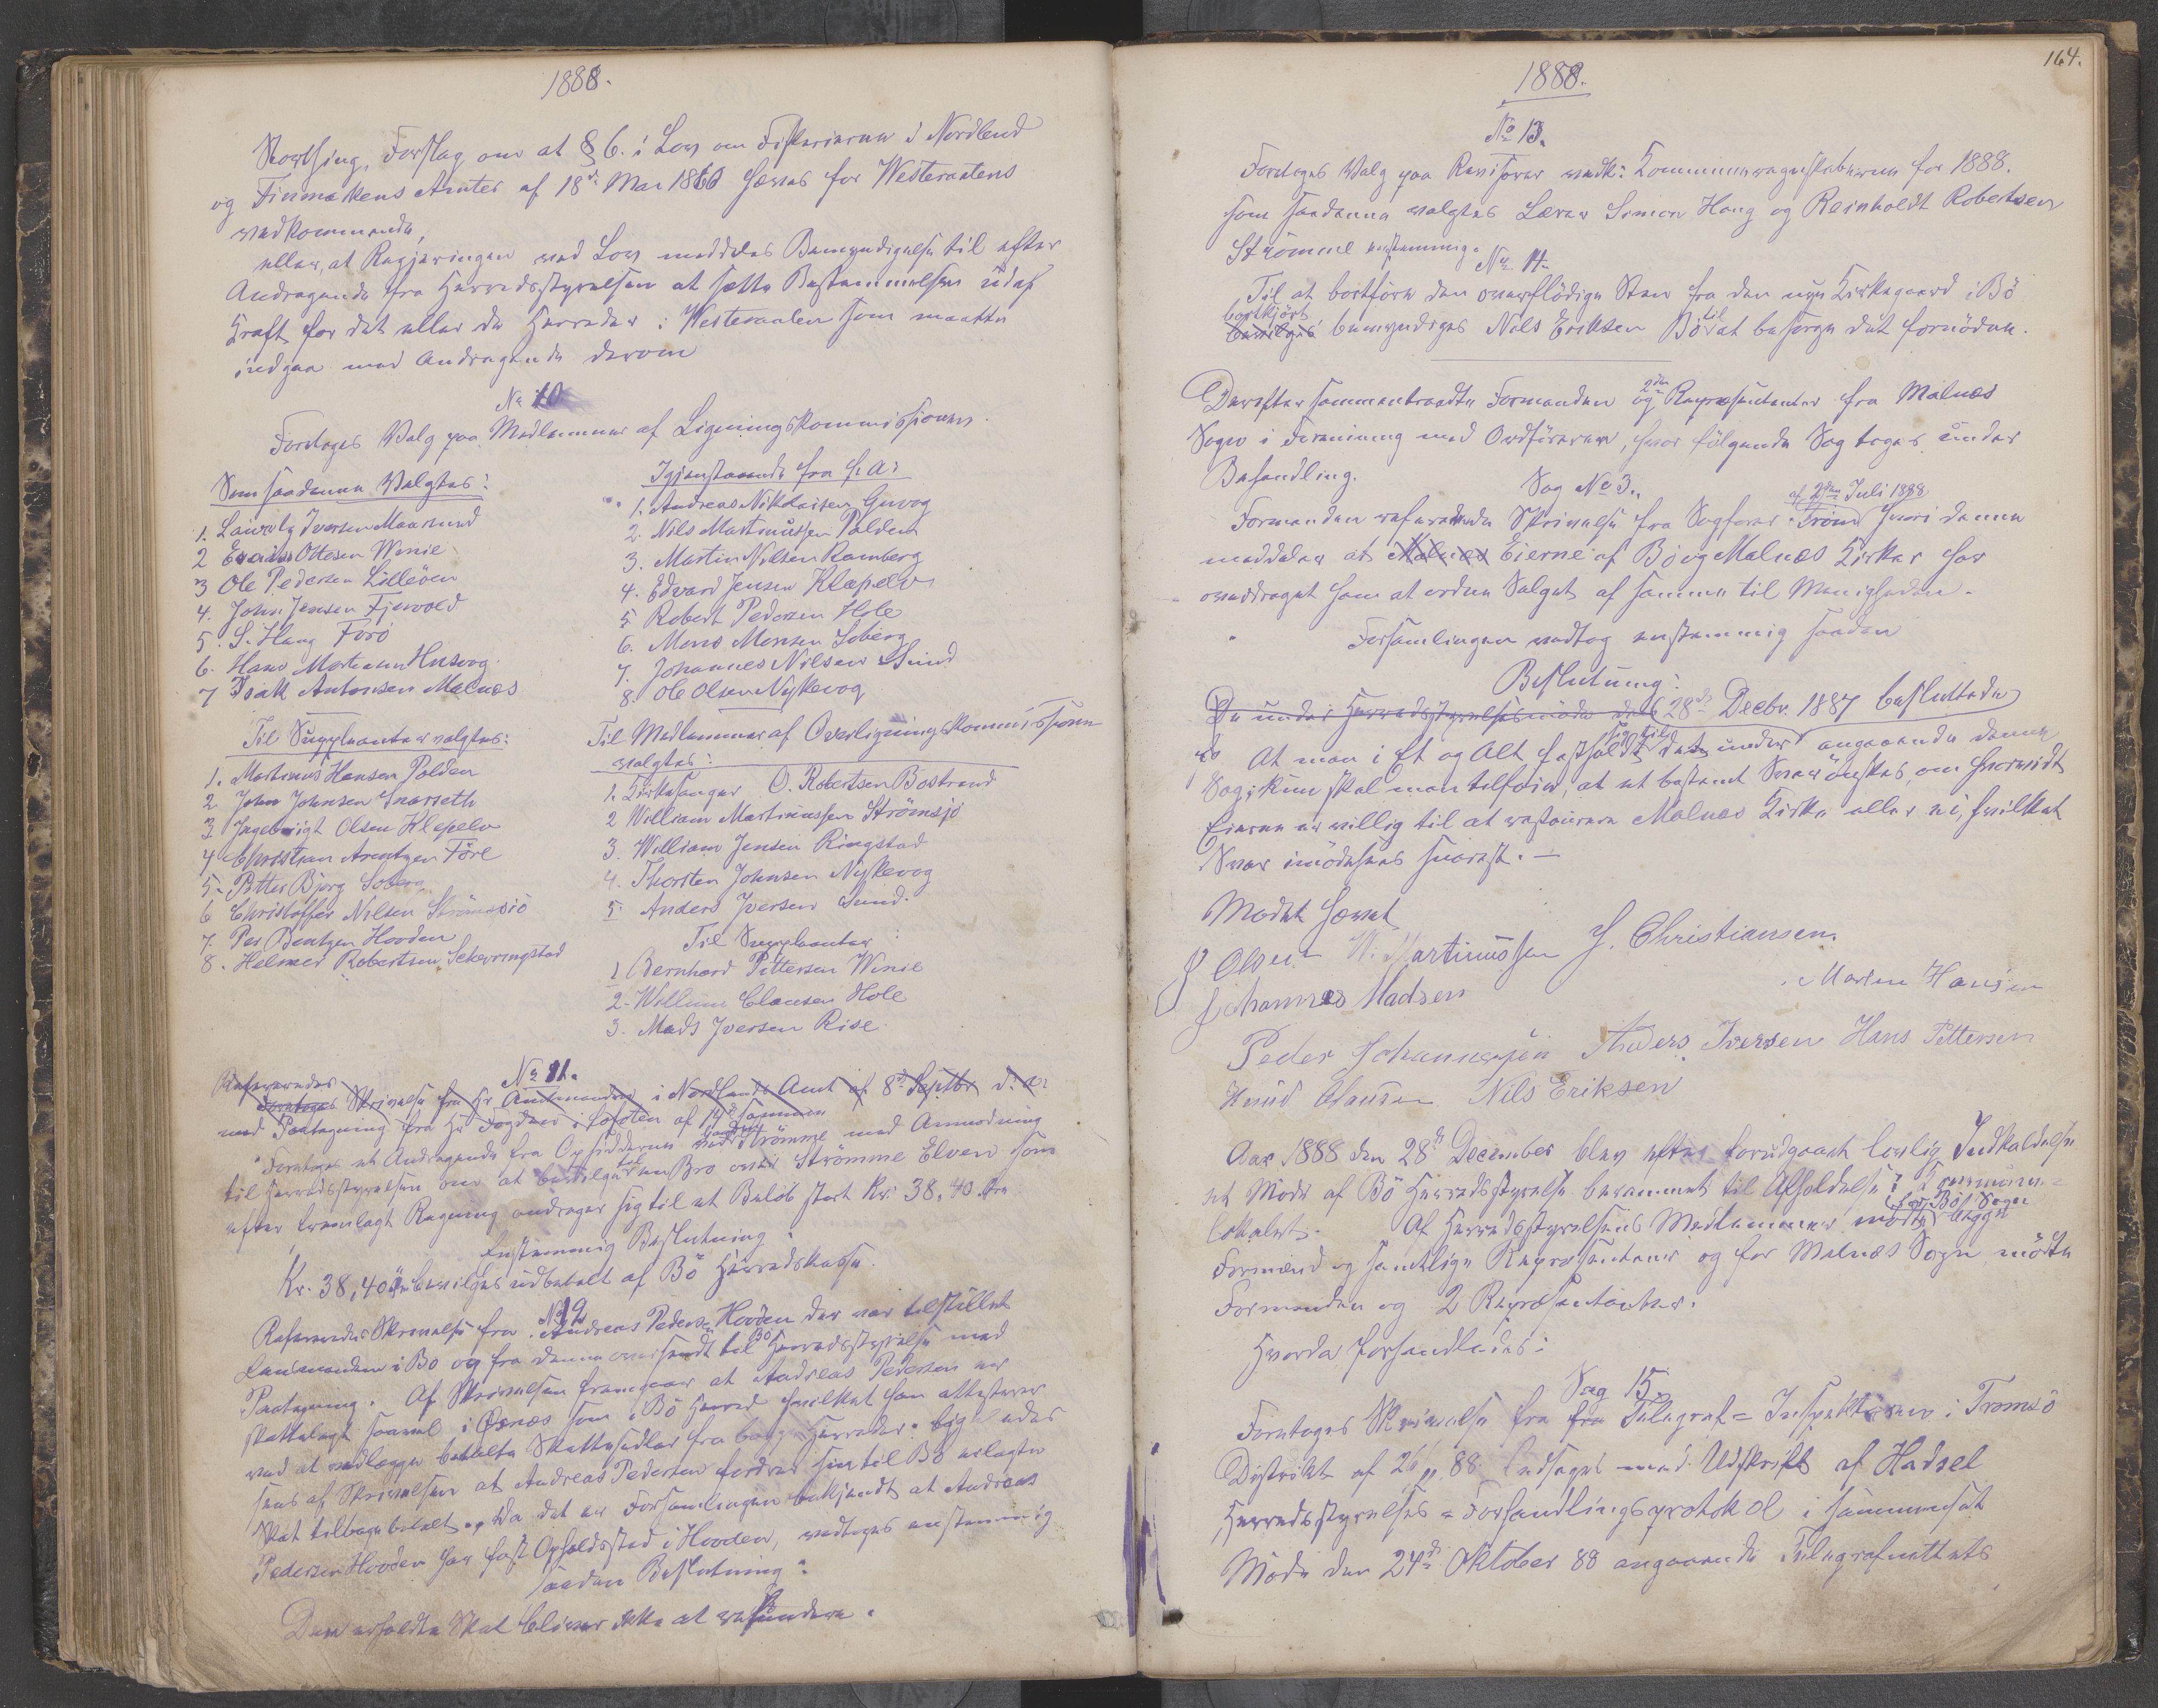 1888.
Storthing, Forslag om at § 6. i Lov om Fiskerierne i Nordland
og Finmarkens Amter af 18de Mai 1860 hæves for Westeraalens
vedkommende,
eller, at Regjeringen ved Lov meddeles Bemyndigelse til efter
Andragende fra Herredsstyrelsen at sætte Bestemmelsen ud af
Kraft for det eller de Herreder i Westeraalen som maatte
indgaa med Andragende derom
No 10
Foretoges Valg paa Medlemmer af Ligningskommissionen.
Som saadanne Valgtes:
1. Lauritz Iversen Maarsund
2 Ottesen Winie
3 Ole Pedersen Lilleöen
4. John Jensen Fjærvold
5. S. Haug Förö
6. Hans Mortensen Husvog.
7 Isak Antonsen Malnæs
Til Suppleanter valgtes:
1. Martinus Hansen Polden
2. John Johnsen Snarseth
3. Ingebrigt Olsen Klepelv
4 Christian Arentzen Före
5. Petter Bjerg Soberg
6 Christoffer Nilsen Strömsjö
7. Per Bentzen Hovden
8. Helmer Robertsen Skjerringstad
Igjenstaaende fra f. A:
1. Andreas Nikolaisen Guvog
2. Nils Martinussen Polden
3. Martin Nilsen Ramberg
4. Edvard Jensen Klepelv
5 Robert Pedersen Hole
6. Mons Monsen Soberg
7. Johannes Nilsen Sund
8. Ole Olsen Nykevog
Til Medlemmer af Overligningskommissionen
valgtes:
1. Kirkesanger O. Robertsen Bostrand
2 William Martinussen Strömsjö
3. William Jensen Ringstad
4. Thorsten Johnsen Nykevog
5. Anders Iversen Sund.
Til Suppleanter:
1 Bernhard Pettersen Winie
2. Willum Clausen Hole
3. Mads Iversen Rise.
No 11.
Refereredes
Foretoges Skrivelse fra Hr Amtmanden i Nordlands Amt af 8de Septbr d. A:
med Paategning fra Hr Fogden i Lofoten af 14de sammen
Foretoges et Andragende fra Opsidderne ved Strömme med Anmodning
til Herredsstyrelsen om at bevilge til en Bro over Strömme Elven som
efter fremlagt Regning andrager sig til et Belöb stort Kr: 38,40 Öre
Enstemmig Beslutning:
Kr. 38,40 Öre bevilges udbetalt af Bö Herredskasse.
No 12
Refereredes Skrivelse fra Andreas Pedersen Hovden der var tilstillet
Lensmanden i Bö og fra denne oversendt til Bö Herredsstyrelse med
Paategning. Af Skrivelsen fremgaar at Andreas Pedersen er
skattelagt saavel i Öxnæs som i Bö Herred hvilket han attesterer
ved at vedlægge betalte Skattesedler fra begge Herreder. Ligeledes
sees af Skrivelsen at Andreas Pedersen fordrer sin til Bö erlagte
Skat tilbagebetalt. Da det er Forsamlingen bekjendt at Andreas
Pedersen Hovden har fast Opholdssted i Hovden, vedtoges enstemmig
saadan Beslutning:
Den erholdte Skat bliver ikke at refundere.
164.
1888.
No 13.
Foretoges Valg paa Revisorer vedk: Kommuneregnskaberne for 1888.
Som saadanne valgtes Lærer Simon Haug og Reinholdt Robertsen
Strömme enstemmig.
No 14.
Til at bortföre den overflödige Sten fra den nye Kirkegaard i Bö
bortkjört
bevilges bemyndiges Nils Eriksen Bö til at besörge det fornödne.
Derefter sammentraadte Formanden og 2de Repræsentanter fra Malnæs
Sogn i Forening med Ordföreren, hvor fölgende Sag toges under
Behandling.
Sag No 3.
af 2den Juli 1888
Formanden refererede Skrivelse fra Sagförer From hvori denne
meddeler at Malnæs Eierne af Bö og Malnæs Kirker har
overdraget ham at ordne Salget af samme til Menigheden.
Forsamlingen vedtog enstemmig saadan
Beslutning:
De under Herredsstyrelsesmöde den 28de Decbr. 1887 besluttede
At man i Et og Alt fastholdt sig til det under angaaende denne
Sag; kun skal man tilföie, at et bestemt Svar önskes, om hvorvidt
Eierne er villig til at restaurere Malnæs Kirke eller ei, hvilket
Svar imödesees snarest. —
Mödet hævet
J Olsen W. Martinussen J. Christiansen.
Johannes Madsen Morten Hansen
Peder Johannessen Anders Iversen Hans Pettersen
Knud Clausen Nils Eriksen
Aar 1888 den 28de December blev efter forudgaaet lovlig Indkaldelse
et Möde af Bö Herredsstyrelse berammet til Afholdelse i Kommune=
lokalet. Af Herredsstyrelsens Medlemmer mödte for Bö Sogn begge
Formænd og samtlige Repræsentanter og for Malnæs Sogn mödte
Formanden og 2 Repræsentanter.
Hvorda forhandledes:
Sag 15.
Foretoges Skrivelse fra fra Telegraf=Inspektören i Tromsö
Distrikt af 26/11 88 ledsaget med Udskrift af Hadsel
Herredsstyrelses=Forhandlingsprotokol i sammensat
Möde den 24de Oktober 88 angaaende Telegrafnettets